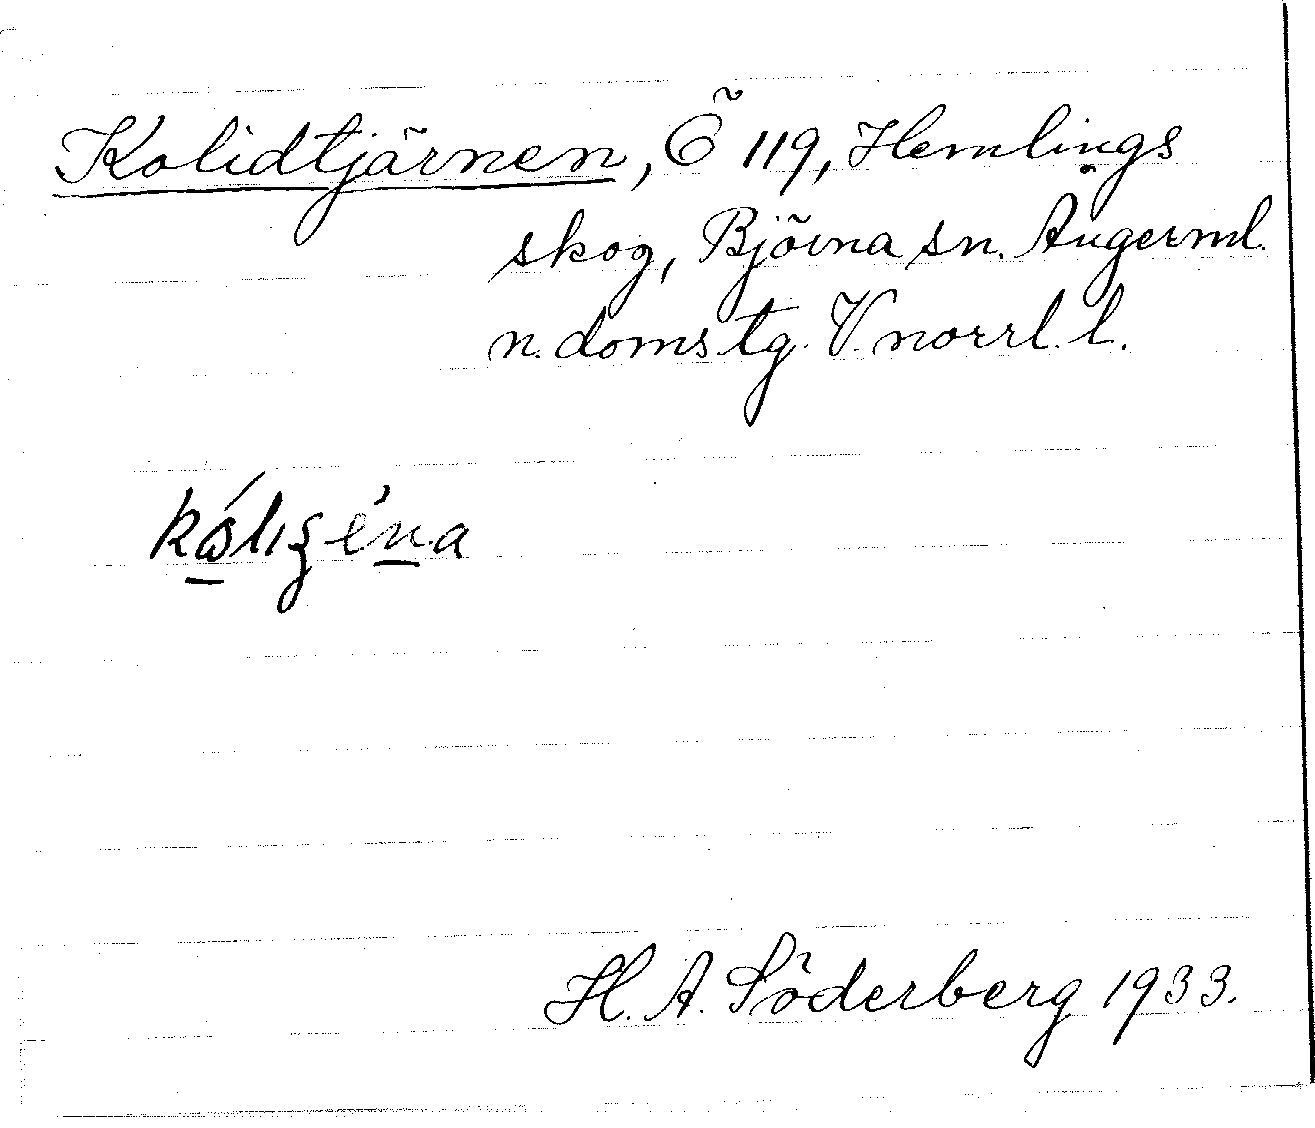 Kolidtjärnen, Ö 119, Hemlings
skog, Björna sn. Ångerml.
n. doms tg. V. norrl. l.
H. A. Söderberg 1933.